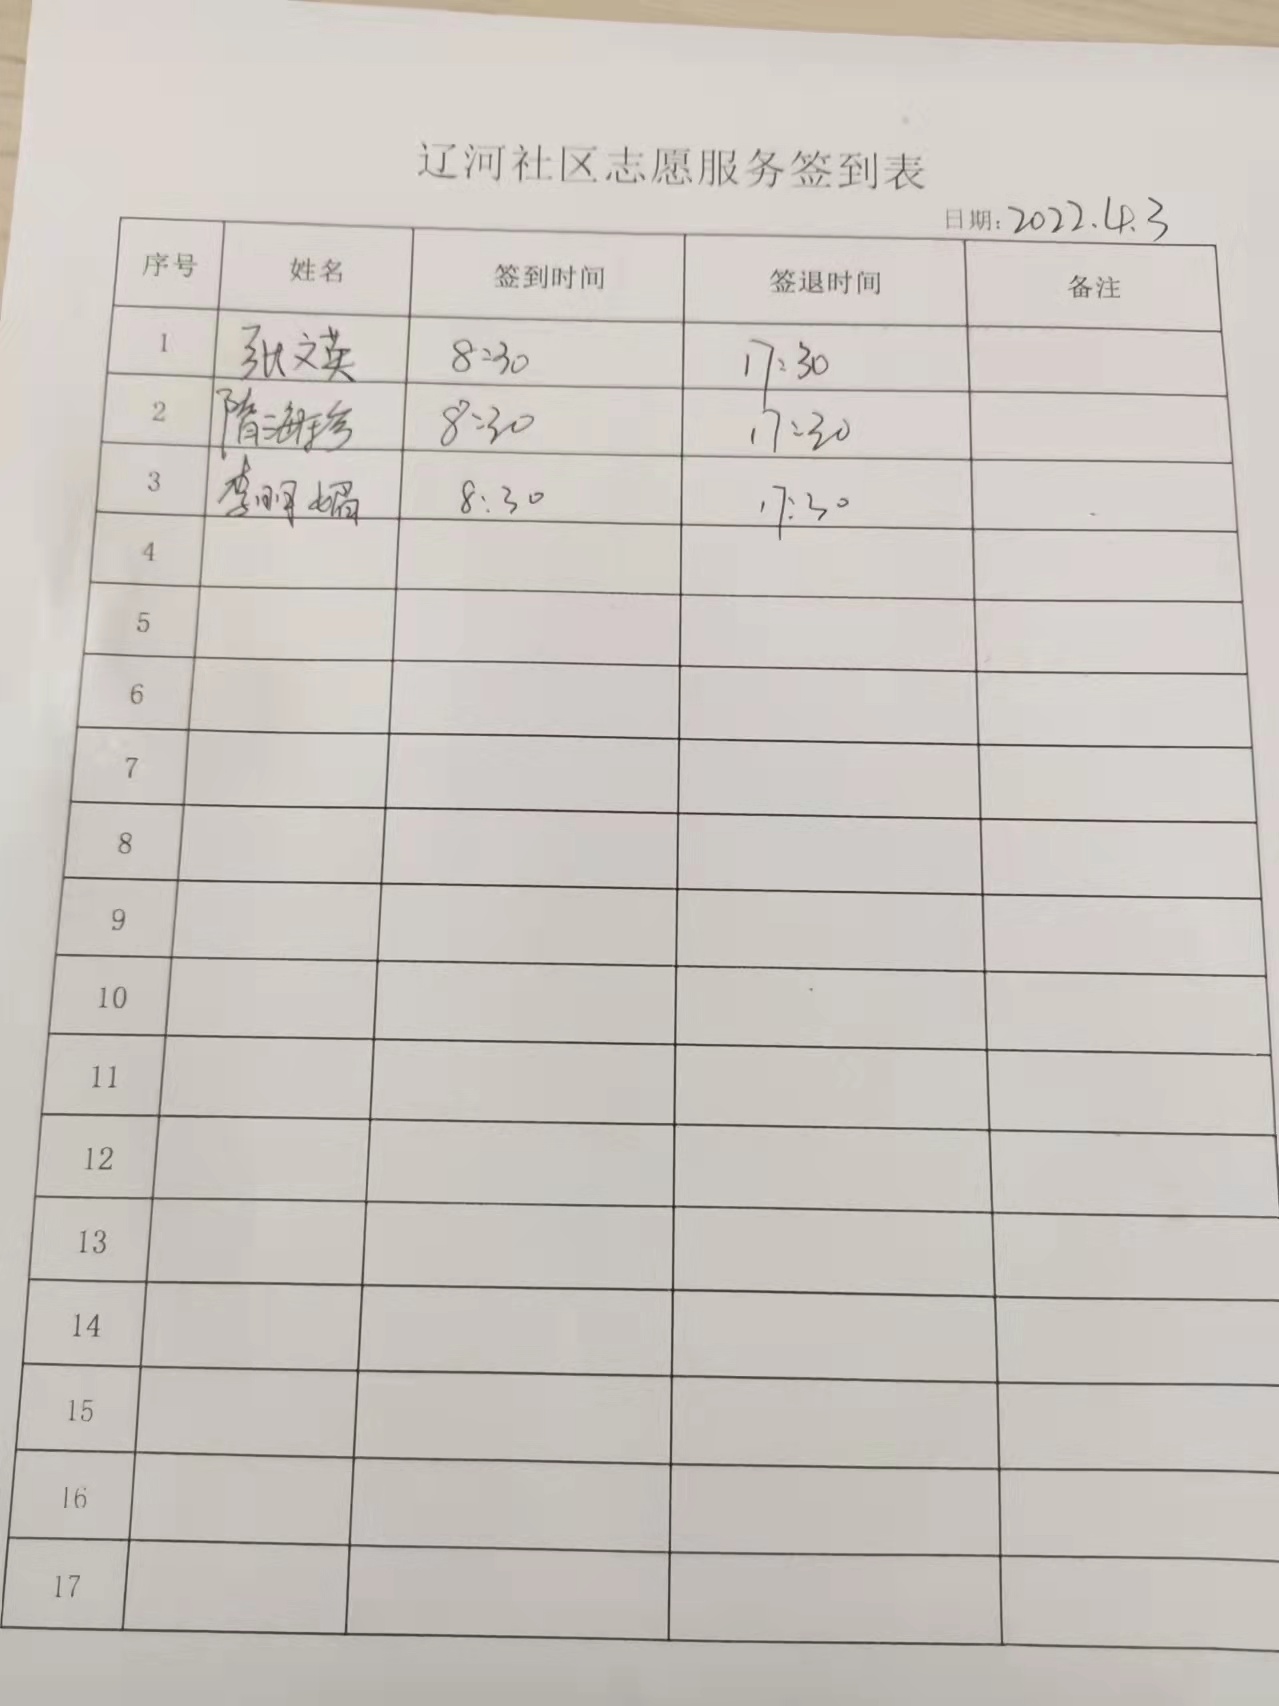 辽河社区志愿服务签到表
日期: 2022.4.3
序号 姓名 签到时间 签退时间 备注
1 张文英 8:30 17:30
2 隋海珍 8:30 17:30
3 李明媚 8:30 17:30
4
5
6
7
8
9
10
11
12
13
14
15
16
17